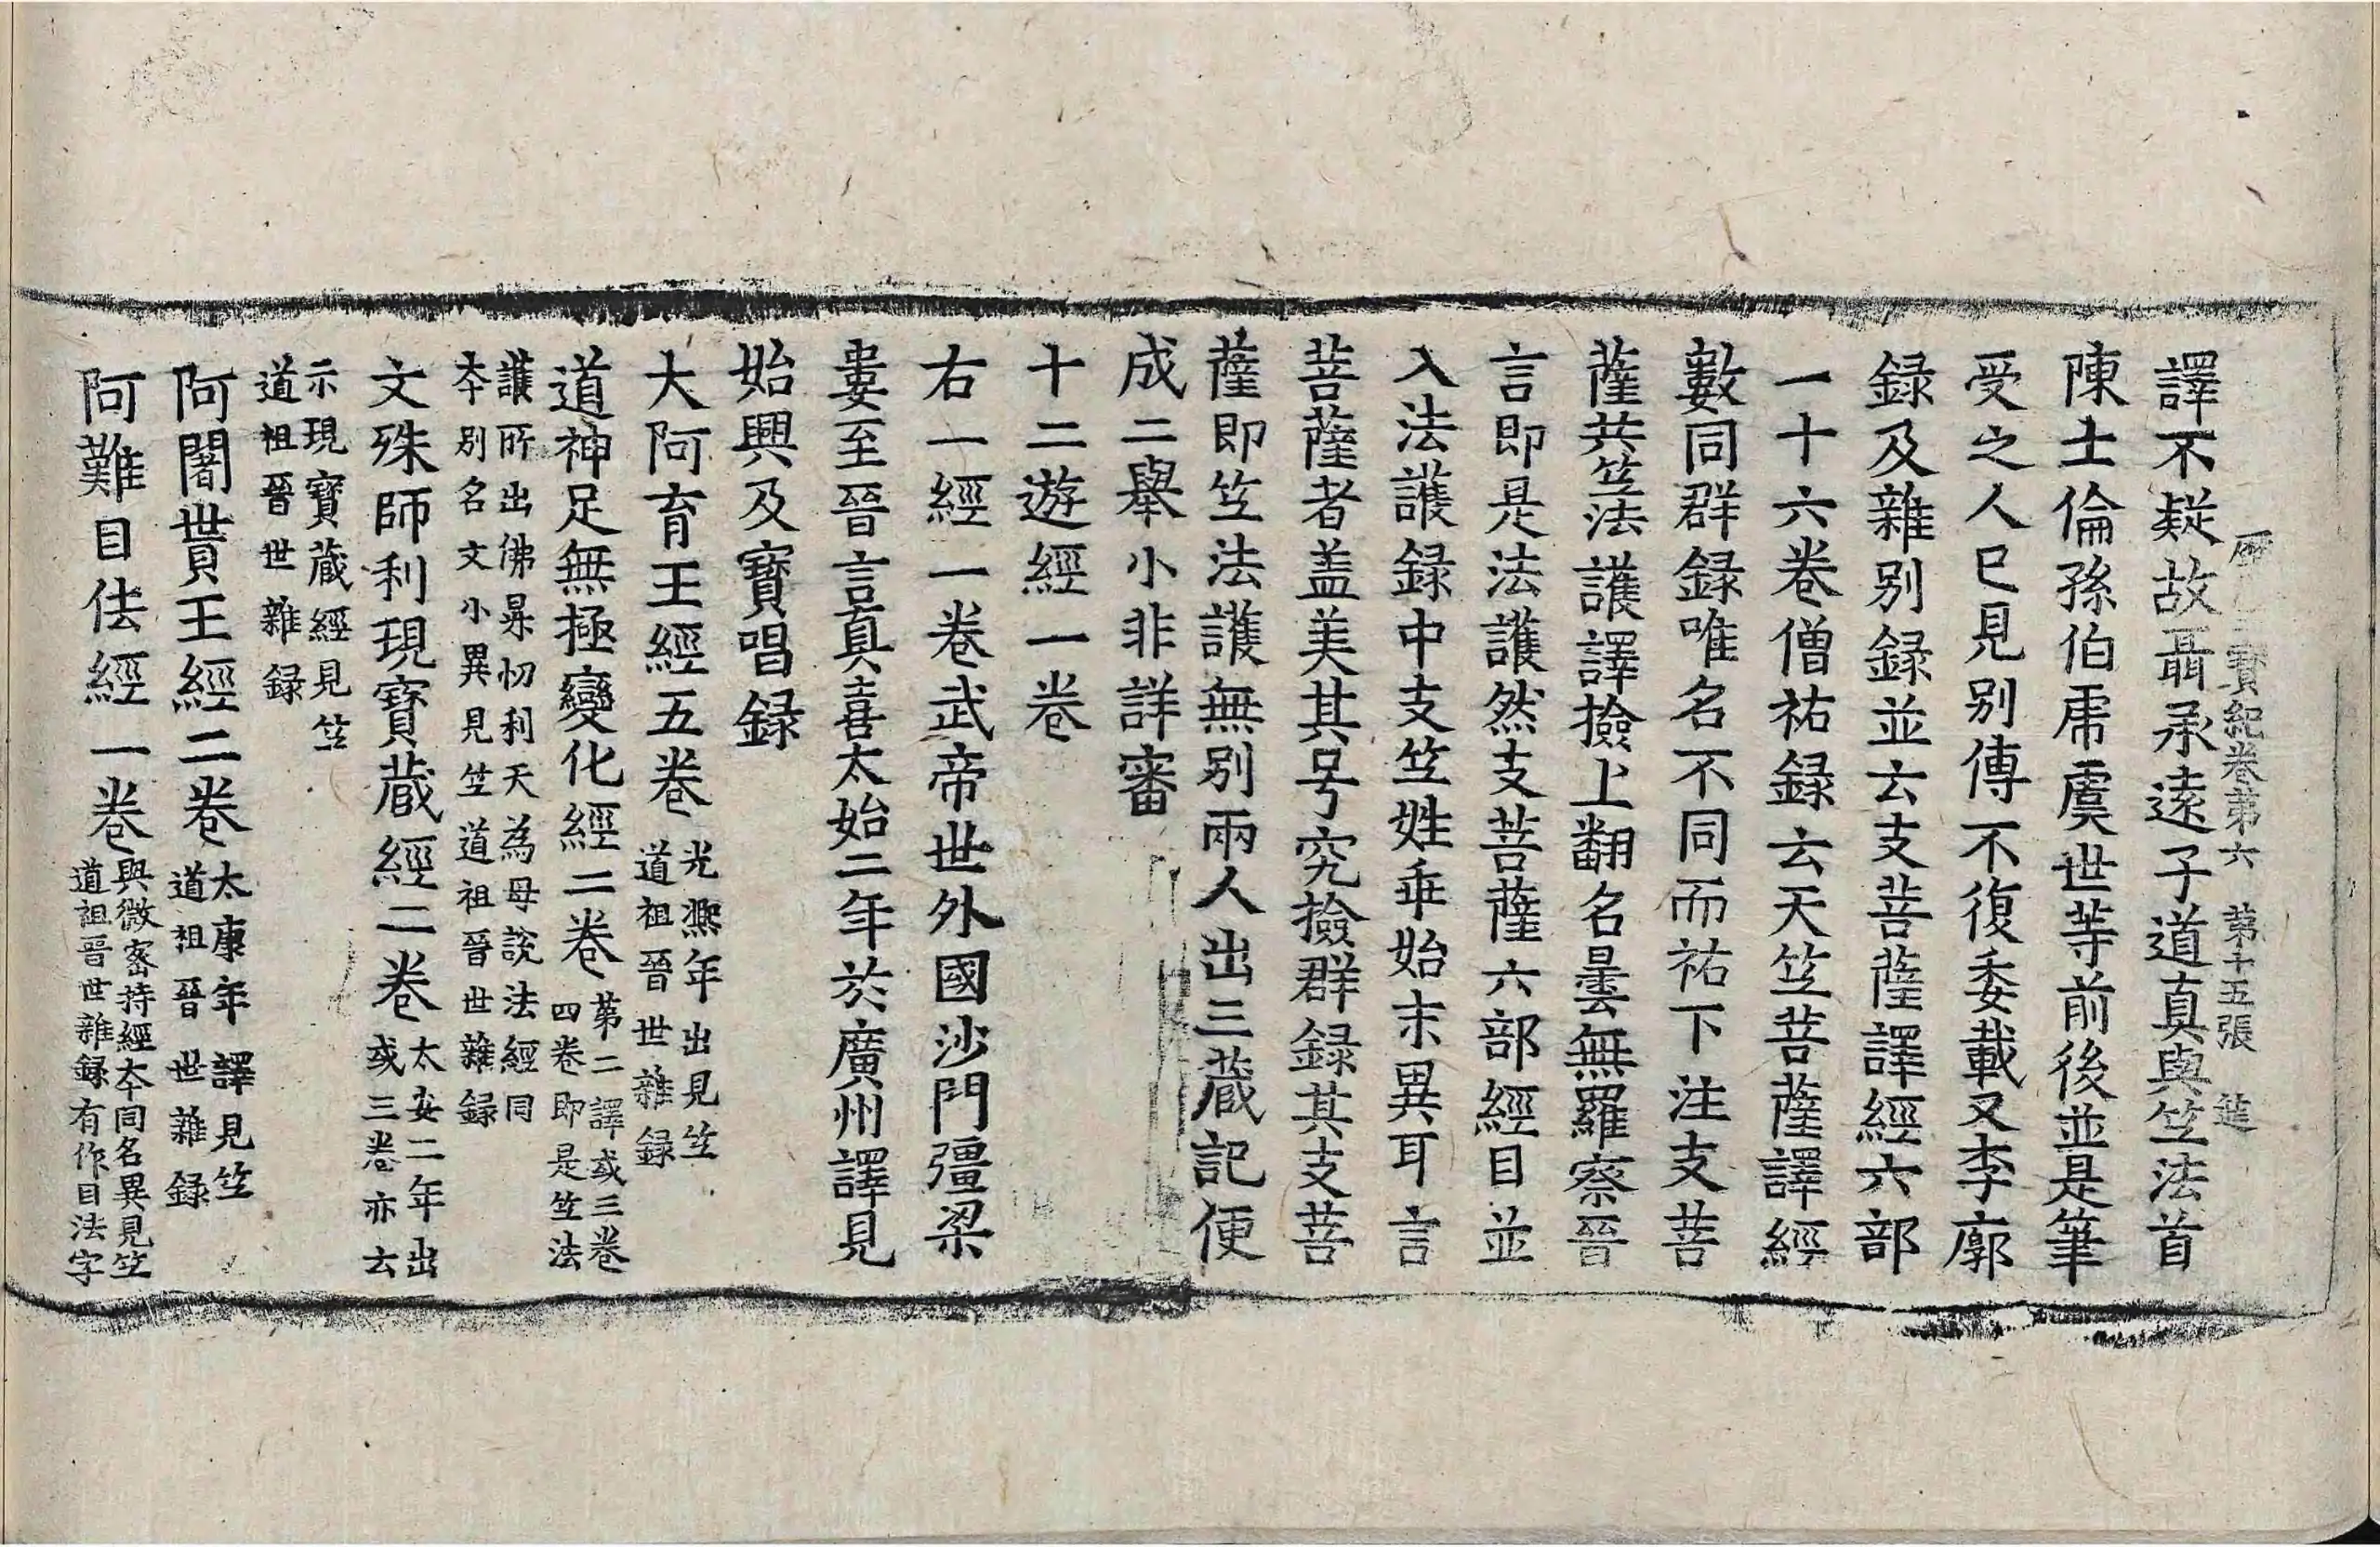 譯不疑故聶承遠子道真與竺法首
歷三寶紀卷第六 第十五張 筵
陳士倫孫伯虎虞世等前後並是筆
受之人已見別傳不復委載又李廓
録及雜別録並云支菩薩譯經六部
一十六卷僧祐録云天竺菩薩譯經
數同群録唯名不同而祐下注支菩
薩共竺法護譯撿上翻名曇無羅察晉
言即是法護然支菩薩六部經目並
入法護録中支竺姓乖始末異耳言
菩薩者盖美其号究撿群録其支菩
薩即竺法護無別兩人出三蔵記便
成二舉小非詳審
十二遊經一卷
右一經一卷武帝世外國沙門彊梁
婁至晉言真喜太始二年於廣州譯見
始興及寶唱録
大阿育王經五卷光熈年出見竺道祖晉世雜録
道神足無極變化經二卷第二譯或三卷四卷即是竺法
護所出佛昇忉利天為母說法經同
本別名文小異見竺道祖晉世雜録
文殊師利現寶蔵經二卷太安二年出或三卷亦云
示現寶蔵經見竺
道祖晉世雜録
阿闍貰王經二卷太康年譯見竺道祖晉世雜録
阿難目佉經一卷與微密持經本同名異見竺道祖晉世雜録有作目法字